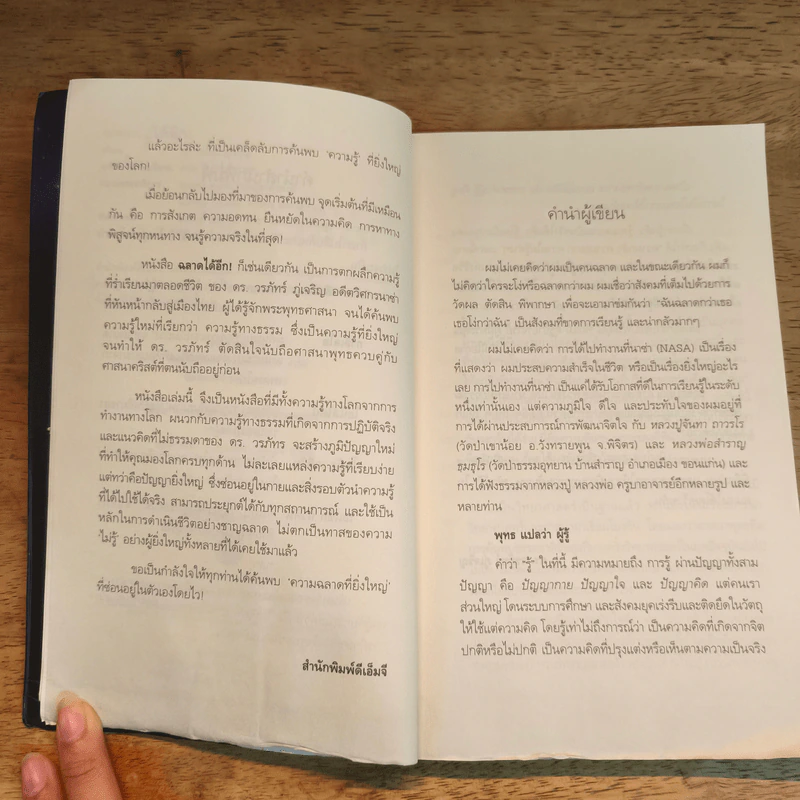 แล้วอะไรล่ะ ที่เป็นเคล็ดลับการค้นพบ 'ความรู้' ที่ยิ่งใหญ่
ของโลก!
เมื่อย้อนกลับไปมองที่มาของการค้นพบ จุดเริ่มต้นที่มีเหมือน
กัน คือ การสังเกต ความอดทน ยืนหยัดในความคิด การหาทาง
พิสูจน์ทุกหนทาง จนรู้ความจริงในที่สุด!
หนังสือ ฉลาดได้อีก! ก็เช่นเดียวกัน เป็นการตกผลึกความรู้
ที่ร่ำเรียนมาตลอดชีวิต ของ ดร. วรภัทร์ ภู่เจริญ อดีตวิศกรนาซ่า
ที่หันหน้ากลับสู่เมืองไทย ผู้ได้รู้จักพระพุทธศาสนา จนได้ค้นพบ
ความรู้ใหม่ที่เรียกว่า ความรู้ทางธรรม ซึ่งเป็นความรู้ที่ยิ่งใหญ่
จนทำให้ ดร. วรภัทร์ ตัดสินใจนับถือศาสนาพุทธควบคู่กับ
ศาสนาคริสต์ที่ตนนับถืออยู่ก่อน
หนังสือเล่มนี้ จึงเป็นหนังสือที่มีทั้งความรู้ทางโลกจากการ
ทำงานทางโลก ผนวกกับความรู้ทางธรรมที่เกิดจากการปฏิบัติจริง
และแนวคิดที่ไม่ธรรมดาของ ดร. วรภัทร จะสร้างภูมิปัญญาใหม่
ที่ทำให้คุณมองโลกครบทุกด้าน ไม่ละเลยแหล่งความรู้ที่เรียบง่าย
แต่ทว่าคือปัญญายิ่งใหญ่ ซึ่งซ่อนอยู่ในกายและสิ่งรอบตัวนำความรู้
ที่ได้ไปใช้ได้จริง สามารถประยุกต์ได้กับทุกสถานการณ์ และใช้เป็น
หลักในการดำเนินชีวิตอย่างชาญฉลาด ไม่ตกเป็นทาสของความ
'ไม่รู้' อย่างผู้ยิ่งใหญ่ทั้งหลายที่ได้เคยใช้มาแล้ว
ขอเป็นกำลังใจให้ทุกท่านได้ค้นพบ 'ความฉลาดที่ยิ่งใหญ่'
ที่ซ่อนอยู่ในตัวเองโดยไว!
สำนักพิมพ์ดีเอ็มจี
คำนำผู้เขียน
ผมไม่เคยคิดว่าผมเป็นคนฉลาด และในขณะเดียวกัน ผมก็
ไม่คิดว่าใครจะโง่หรือฉลาดกว่าผม ผมเชื่อว่าสังคมที่เต็มไปด้วยการ
วัดผล ตัดสิน พิพากษา เพื่อจะเอามาข่มกันว่า "ฉันฉลาดกว่าเธอ
เธอโง่กว่าฉัน" เป็นสังคมที่ขาดการเรียนรู้ และน่ากลัวมากๆ
ผมไม่เคยคิดว่า การได้ไปทำงานที่นาซ่า (NASA) เป็นเรื่อง
ที่แสดงว่า ผมประสบความสำเร็จในชีวิต หรือเป็นเรื่องยิ่งใหญ่อะไร
เลย การไปทำงานที่นาซ่า เป็นแค่ได้รับโอกาสที่ดีในการเรียนรู้ในระดับ
หนึ่งเท่านั้นเอง แต่ความภูมิใจ ดีใจ และประทับใจของผมอยู่ที่
การได้ผ่านประสบการณ์การพัฒนาจิตใจ กับ หลวงปู่จันทา ถาวรโร
(วัดป่าเขาน้อย อ.วังทรายพูน จ.พิจิตร) และ หลวงพ่อสำราญ
ธมฺธุโร (วัดป่าธรรมอุทยาน บ้านสำราญ อำเภอเมือง ขอนแก่น) และ
การได้ฟังธรรมจากหลวงปู่ หลวงพ่อ ครูบาอาจารย์อีกหลายรูป และ
หลายท่าน
พุทธ แปลว่า ผู้รู้
คำว่า "รู้" ในที่นี้ มีความหมายถึง การรู้ ผ่านปัญญาทั้งสาม
ปัญญา คือ ปัญญากาย ปัญญาใจ และ ปัญญาคิด แต่คนเรา
ส่วนใหญ่ โดนระบบการศึกษา และสังคมยุคเร่งรีบและติดยึดในวัตถุ
ให้ใช้แต่ความคิด โดยรู้เท่าไม่ถึงการณ์ว่า เป็นความคิดที่เกิดจากจิต
ปกติหรือไม่ปกติ เป็นความคิดที่ปรุงแต่งหรือเห็นตามความเป็นจริง